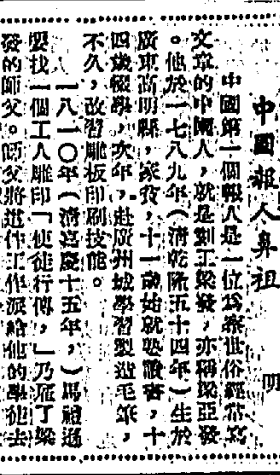 中國報人鼻祖
明
中國第一個報人是一位爲世俗經常寫
文章的中國人，就是刻工梁發，亦稱梁亞發
。他於一七八九年（清乾隆五十四年）生於
廣東高明縣，家貧，十一歲始就塾讀書，十
四歲輟學，次年，赴廣州城學習製造毛筆，
不久，改習雕板印刷技能。
一八一〇年（清嘉慶十五年，）馬禮遜
要找一個工人雕印「使徒行傳，」乃雇了梁
發的師父。師父將這件工作派給他的學徒去